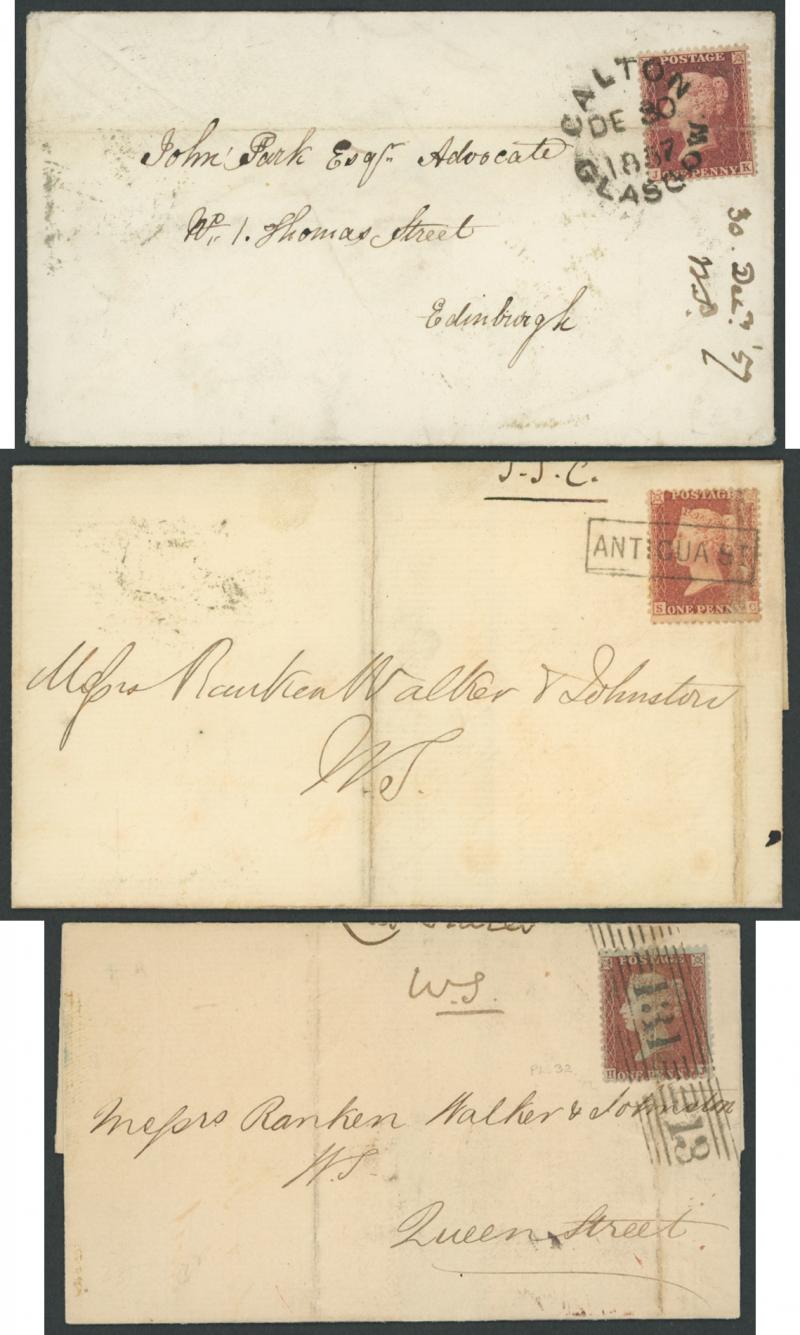 POSTAGE
J ONE PENNY K
CALTON
DE 30
1857
GLASGOW
John Park Esqr. Advocate
No. 1. Thomas Street
Edinburgh
30. Decr. '57
J.J.C.
POSTAGE
S ONE PENNY C
ANTIGUA ST
Messrs Ranken Walker & Johnston
W.S.
W.S.
POSTAGE
H ONE PENNY
131
13
PL 32
Messrs Ranken Walker & Johnston
W.S.
Queen Street